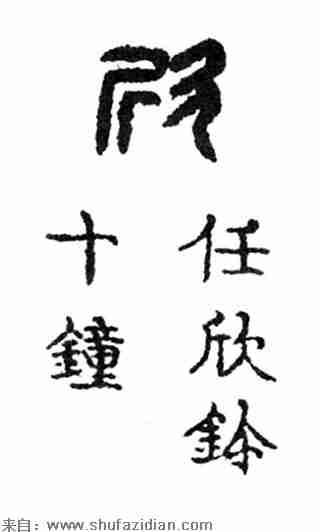 欣
任欣鉩
十鐘
来自：www.shufazidian.com